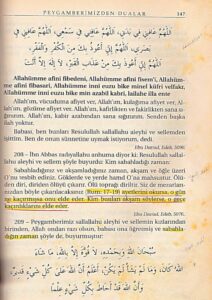 PEYGAMBERİMİZDEN DUALAR 147
اَللّٰهُمَّ عَافِنِي فِي بَدَنِي، اَللّٰهُمَّ عَافِنِي فِي سَمْعِي،
اَللّٰهُمَّ عَافِنِي فِي بَصَرِي، اَللّٰهُمَّ إِنِّي أَعُوذُ بِكَ مِنَ
الْكُفْرِ وَالْفَقْرِ، اَللّٰهُمَّ إِنِّي أَعُوذُ بِكَ مِنْ عَذَابِ
الْقَبْرِ، لَا إِلٰهَ إِلَّا أَنْتَ
Allahümme afinî fibedenî, Allahümme afinî fîsem'î, Allahüm-
me afinî fîbasarî, Allahümme innî euzu bike minel küfri velfakr,
Allahümme innî euzu bike min azabil kabri, lailahe illa ente
Allah'ım, vücuduma afiyet ver, Allah'ım, kulağıma afiyet ver, Al-
lah'ım, gözüme afiyet ver. Allah'ım, kâfirlikten ve fakirlikten sana sı-
ğınırım. Allah'ım, kabir azabından sana sığınırım. Senden başka
ilah yoktur.
Babası, ben bunları Resulullah sallallahü aleyhi ve sellemden
işittim. Ben de onun sünnetine uyuyorum, dedi.
Ebu Davud, Edeb. 5090.
208 – İbn Abbas radıyallahu anhuma diyor ki: Resulullah sallal-
lahü aleyhi ve sellem şöyle buyurdu: Kim sabahladığı zaman:
Sabahladığınız ve akşamladığınız zaman, akşam ve öğle üzeri
O'nu tesbih ediniz. Göklerde ve yerde hamd O'na mahsustur. Ölü-
den diri çıkarır. Diriden ölü çıkarır. Ölü toprağı diriltir. Siz de mezarları-
nızdan böyle çıkarılacaksınız (Rum: 17-19) ayetlerini okursa, o gün
ne kaçırmışsa onu elde eder. Kim bunları akşam söylerse, o gece
kaçırdıklarını elde eder.
Ebu Davud, Edeb. 5076.
209 – Peygamberimiz sallallahü aleyhi ve sellemin kızlarından
birinden, Allah ondan razı olsun, babası ona öğretmiş ve sabahla-
dığın zaman şöyle de, buyurmuştur:
سُبْحَانَ اللّٰهِ وَبِحَمْدِهِ، لَا قُوَّةَ إِلَّا بِاللّٰهِ، مَا شَاءَ
اللّٰهُ كَانَ، وَمَا لَمْ يَشَأْ لَمْ يَكُنْ، أَعْلَمُ أَنَّ اللّٰهَ